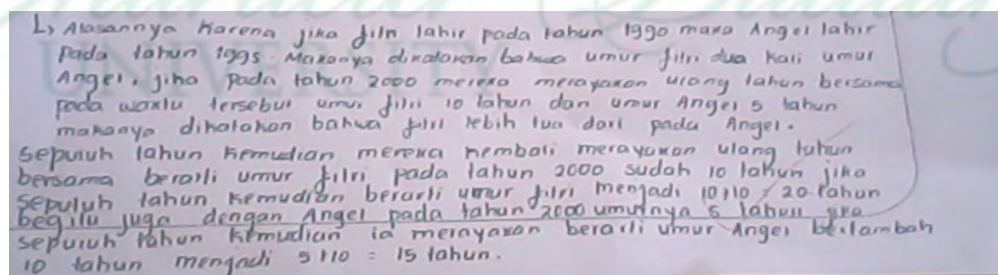 L> Alasannya Karena jika fitri lahir pada tahun 1990 maka Angel lahir
pada tahun 1995 Makanya dikatakan bahwa umur fitri dua kali umur
Angel. jika pada tahun 2000 mereka merayakan ulang tahun bersama
pada waktu tersebut umur fitri 10 tahun dan umur Angel 5 tahun
makanya dikatakan bahwa fitri lebih tua dari pada Angel.
sepuluh tahun kemudian mereka kembali merayakan ulang tahun
bersama berarti umur fitri pada tahun 2000 sudah 10 tahun jika
sepuluh tahun kemudian berarti umur fitri menjadi 10+10 = 20 tahun
begitu juga dengan Angel pada tahun 2000 umurnya 5 tahun jika
sepuluh tahun kemudian ia merayakan berarti umur Angel bertambah
10 tahun menjadi 5+10 = 15 tahun.